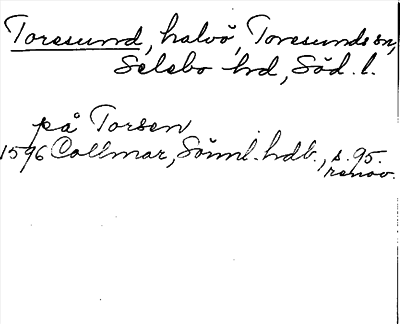 Toresund, halvö, Toresunds sn,
Selebo hd, Söd. l.
på Torsen
1596 Collmar, Sörml. hdb., s. 95.
renov.